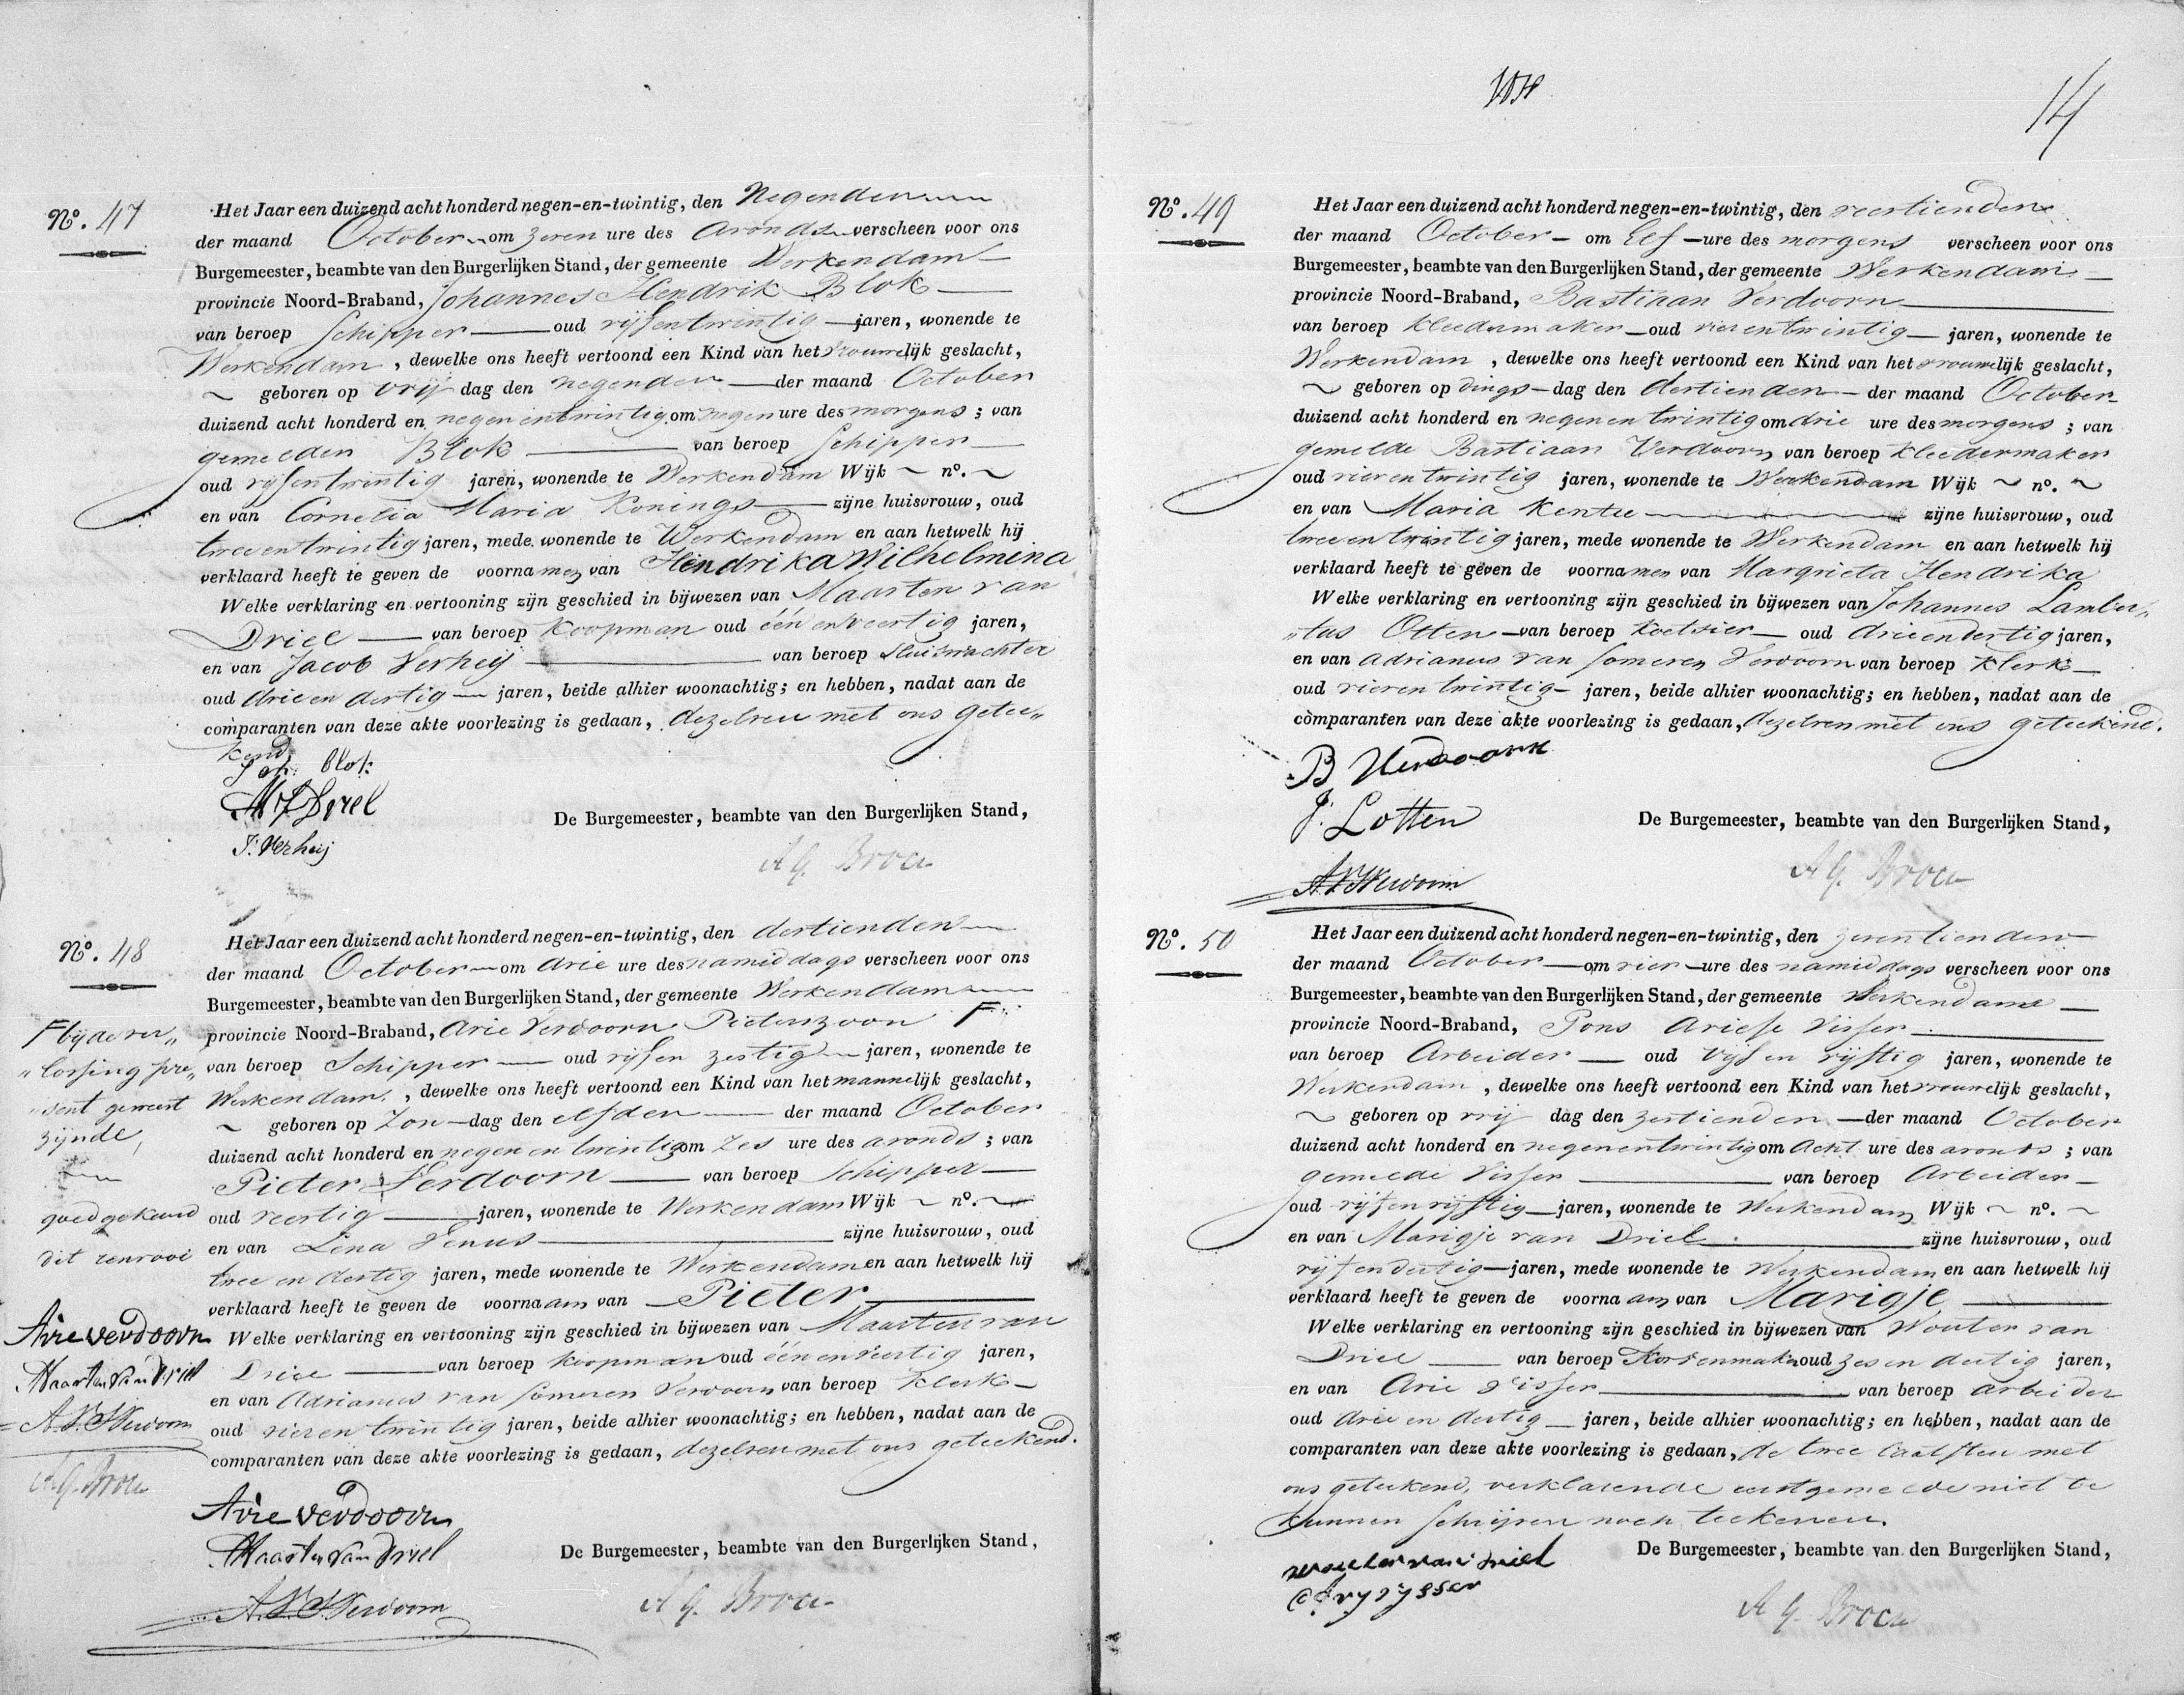 Nº. 47
Het Jaar een duizend acht honderd negen-en-twintig, den Negenden
der maand October om zeven ure des avonds verscheen voor ons
Burgemeester, beambte van den Burgerlijken Stand, der gemeente Werkendam
provincie Noord-Braband, Johannes Hendrik Blok
van beroep Schipper oud vijfentwintig jaren, wonende te
Werkendam, dewelke ons heeft vertoond een Kind van het vrouwelijk geslacht,
~ geboren op vrij dag den negenden der maand October
duizend acht honderd en negenentwintig om negen ure des morgens; van
gemelden Blok van beroep Schipper
oud vijfentwintig jaren, wonende te Werkendam Wijk ~ nº. ~
en van Cornelia Maria Konings zijne huisvrouw, oud
tweeentwintig jaren, mede wonende te Werkendam en aan hetwelk hij
verklaard heeft te geven de voornamen van Hendrika Wilhelmina
Welke verklaring en vertooning zijn geschied in bijwezen van Maarten van
Driel van beroep Koopman oud één en veertig jaren,
en van Jacob Verheij van beroep Sluiswachter
oud drie en dertig jaren, beide alhier woonachtig; en hebben, nadat aan de
comparanten van deze akte voorlezing is gedaan, dezelven met ons getee„
kend
Joh: Blok
MVDriel
J: Verheij
De Burgemeester, beambte van den Burgerlijken Stand,
A G. Broeu
Nº. 48
Het Jaar een duizend acht honderd negen-en-twintig, den dertienden
der maand October om drie ure des namiddags verscheen voor ons
Burgemeester, beambte van den Burgerlijken Stand, der gemeente Werkendam
provincie Noord-Braband, Arie Verdoorn Pieterszoon F
van beroep Schipper oud vijf en zestig jaren, wonende te
Werkendam, dewelke ons heeft vertoond een Kind van het mannelijk geslacht,
~ geboren op Zon dag den elfden der maand October
duizend acht honderd en negen en twintig om zes ure des avonds; van
Pieter Verdoorn van beroep Schipper
oud veertig jaren, wonende te Werkendam Wijk ~ nº. ~
en van Lena Venus zijne huisvrouw, oud
twee en dertig jaren, mede wonende te Werkendam en aan hetwelk hij
verklaard heeft te geven de voornaam van Pieter
Welke verklaring en vertooning zijn geschied in bijwezen van Maarten van
Driel van beroep koopman oud één en veertig jaren,
en van Adrianus van Someren Verdoorn van beroep Klerk
oud vier en twintig jaren, beide alhier woonachtig; en hebben, nadat aan de
comparanten van deze akte voorlezing is gedaan, dezelven met ons geteekend.
F bij de ver„
„lossing pre„
„sent geweest
zijnde,
goedgekeurd
dit renvooi
Arie verdoorn
Maarten van Driel
A.V.S.Verdoorn
A. G. Broeu
Arie verdoorn
Maarten van Driel
A.V.S.Verdoorn
De Burgemeester, beambte van den Burgerlijken Stand,
A G. Broeu
14
Nº. 49
Het Jaar een duizend acht honderd negen-en-twintig, den veertienden
der maand October om Elf ure des morgens verscheen voor ons
Burgemeester, beambte van den Burgerlijken Stand, der gemeente Werkendam
provincie Noord-Braband, Bastiaan Verdoorn
van beroep kleedermaker oud vierentwintig jaren, wonende te
Werkendam, dewelke ons heeft vertoond een Kind van het vrouwelijk geslacht,
~ geboren op dings dag den dertienden der maand October
duizend acht honderd en negenentwintig om drie ure des morgens; van
gemelde Bastiaan Verdoorn van beroep Kleedermaker
oud vierentwintig jaren, wonende te Werkendam Wijk ~ nº. ~
en van Maria Kentie zijne huisvrouw, oud
tweeentwintig jaren, mede wonende te Werkendam en aan hetwelk hij
verklaard heeft te geven de voornamen van Margrieta Hendrika
Welke verklaring en vertooning zijn geschied in bijwezen van Johannes Lamber„
„tus Otten van beroep Koetsier oud drieendertig jaren,
en van Adrianus van Someren Verdoorn van beroep Klerk
oud vierentwintig jaren, beide alhier woonachtig; en hebben, nadat aan de
comparanten van deze akte voorlezing is gedaan, dezelven met ons geteekend.
B Verdoorn
J: Lotten
A.V.S.Verdoorn
De Burgemeester, beambte van den Burgerlijken Stand,
A G. Broeu
Nº. 50
Het Jaar een duizend acht honderd negen-en-twintig, den zeventienden
der maand October om vier ure des namiddags verscheen voor ons
Burgemeester, beambte van den Burgerlijken Stand, der gemeente Werkendam
provincie Noord-Braband, Pons Ariese Visser
van beroep Arbeider oud vijf en vijftig jaren, wonende te
Werkendam, dewelke ons heeft vertoond een Kind van het vrouwelijk geslacht,
~ geboren op vrij dag den zestienden der maand October
duizend acht honderd en negenentwintig om Acht ure des avonds; van
gemelde Visser van beroep Arbeider
oud vijfenvijftig jaren, wonende te Werkendam Wijk ~ nº. ~
en van Marigje van Driel zijne huisvrouw, oud
vijfendertig jaren, mede wonende te Werkendam en aan hetwelk hij
verklaard heeft te geven de voornaam van Marigje
Welke verklaring en vertooning zijn geschied in bijwezen van Wouter van
Driel van beroep Korvenmaker oud zes en dertig jaren,
en van Arie Visser van beroep arbeider
oud drie en dertig jaren, beide alhier woonachtig; en hebben, nadat aan de
comparanten van deze akte voorlezing is gedaan, de twee laatsten met
ons geteekend, verklarende eerstgemelde niet te
kunnen schrijven noch teekenen.
wouter van driel
De Burgemeester, beambte van den Burgerlijken Stand,
A G. Broeu